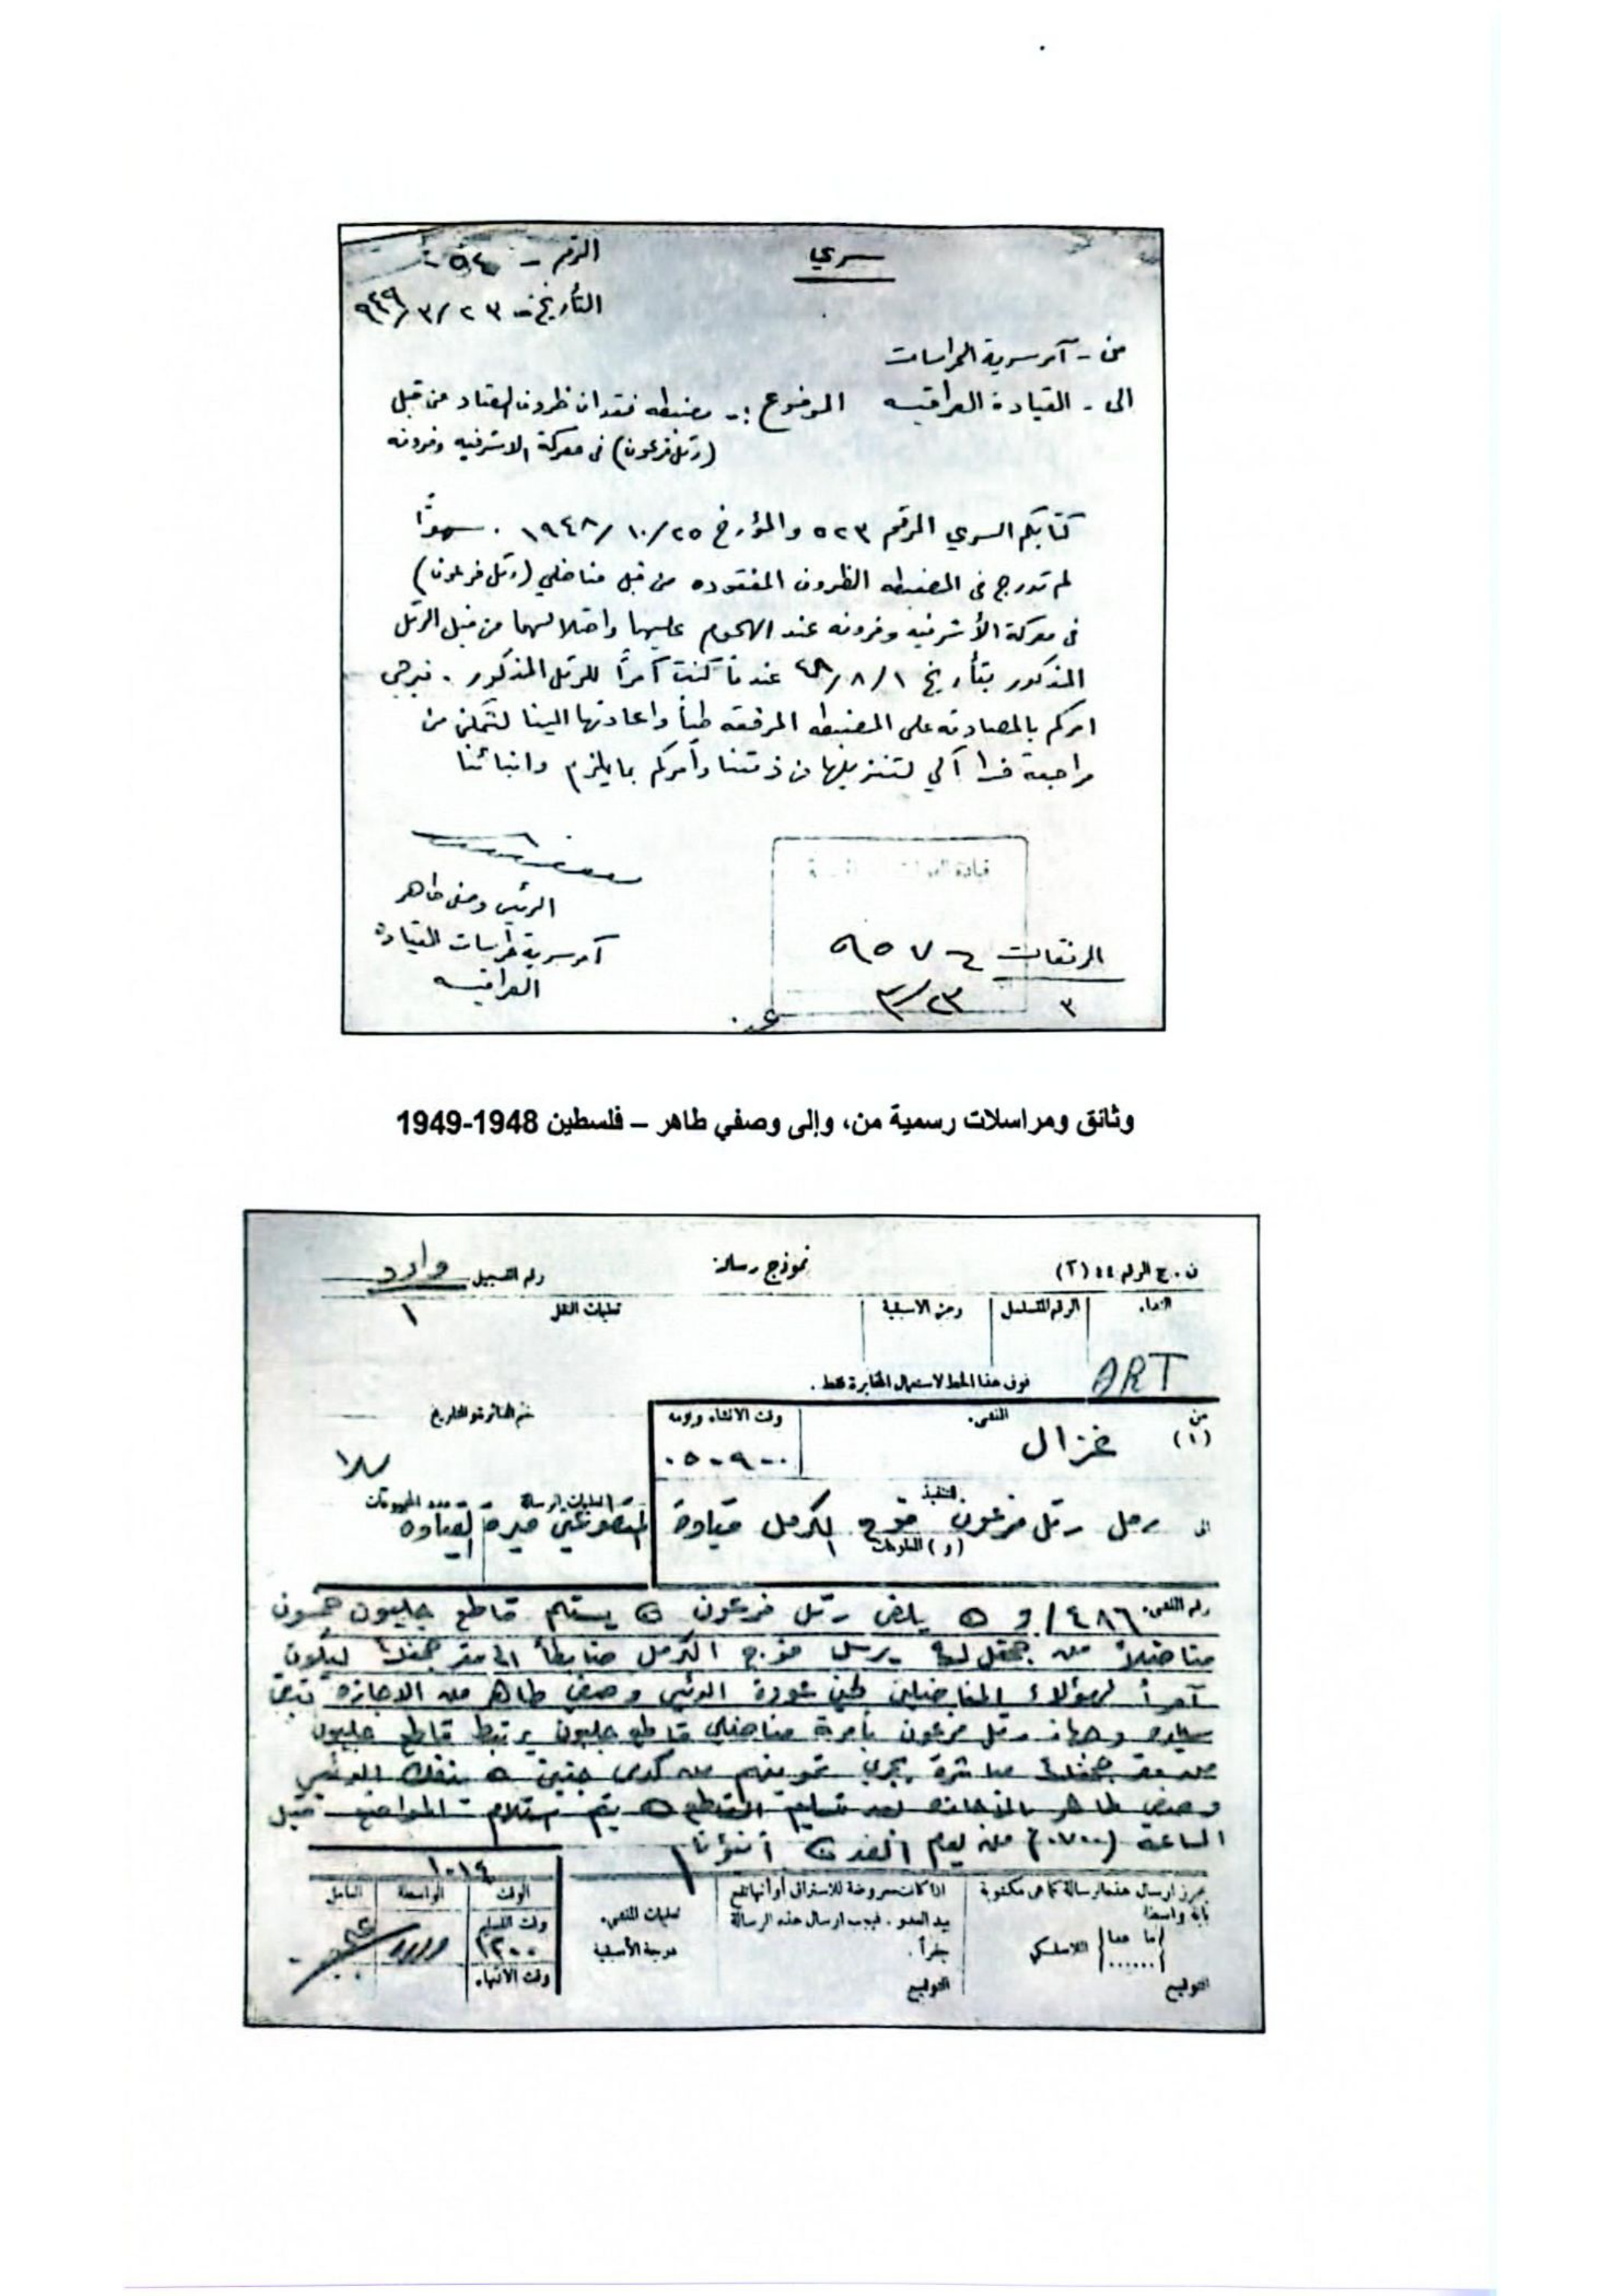 سري
الرقم - ٥٤ -
التأريخ - ٢٣ /٣ /٩٤٩
من - آمر سرية الحراسات
الى - القيادة العراقيه الموضوع :- مضبطه فقدان ظروف العتاد من قبل
(رتل فرعون) في معركة الاشرفيه وفرونه
كتابكم السري المرقم ٥٢٣ والمؤرخ ٢٥ /١٠ /١٩٤٨ . سهوًا
لم تدرج في المضبطه الظروف المفقوده من قبل مناضلي (رتل فرعون)
في معركة الأشرفيه وفرونه عند الهجوم عليها واحتلالهما من قبل الرتل
المذكور بتأريخ ١ /٨ /٤٨ عندما كنت آمرًا للرتل المذكور . نرجي
امركم بالمصادقه على المضبطه المرفقه طيًا واعادتها الينا لنتمكن من
مراجعة لتنزيلها من ذمتنا وأمركم بما يلزم وانبائنا
الرئيس وصفي طاهر
آمر سرية حراسات القيادة
العراقيه
قيادة
المرفقات
٣
٩٥٧٤
٢٣ /٣
وثائق ومراسلات رسمية من، وإلى وصفي طاهر – فلسطين 1948-1949
ن . ج الرقم ٤٤ (٢)
نموذج رسالة
رقم التسجيل وارد
النداء
الرقم المتسلسل
رمز الاسبقية
تعليمات النقل
١
ART
فوق هذا الخط لاستعمال المخابرة فقط .
من
(١)
المنشىء
غزال
وقت الانشاء ويومه
٠٥٠٩٠٠
ختم الدائرة والتاريخ
الى
للتنفيذ
رحل رتل فرعون فوج الكرمل قيادة
(و) للمعلومات
رقم المنشىء ٤٨٦ /و يلغى رتل فرعون يستلم قاطع جلبون خمسون
مناضلاً من جحفل يرسل فوج الكرمل ضابطاً الى مقر جحفل ليكون
آمراً لهؤلاء المناضلين لحين عودة الرئيس وصفي طاهر من الاجازة تبقى
رتل فرعون بأمرة مناضلي قاطع جلبون يرتبط قاطع جلبون
مباشرة يجري تموينهم من جنين ينفك الرئيس
وصفي طاهر بالاجازه بعد تسليم القاطع يتم استلام المواضع قبل
الساعة (٠٧٠٠) من يوم الغد أنبؤنا
١٠١٤
يجوز ارسال هذه الرسالة كما هي مكتوبة
باية واسطة
ما عدا
اللاسلكي
التوقيع
اذا كانت معروضة للاستراق أو أنها تقع
بيد العدو . فيجب ارسال هذه الرسالة
جفراً .
التوقيع
تعليمات المنشىء
درجة الأسبقية
الوقت
الواسطة
العامل
وقت التسلم
١٢٠٠
وقت الانتهاء